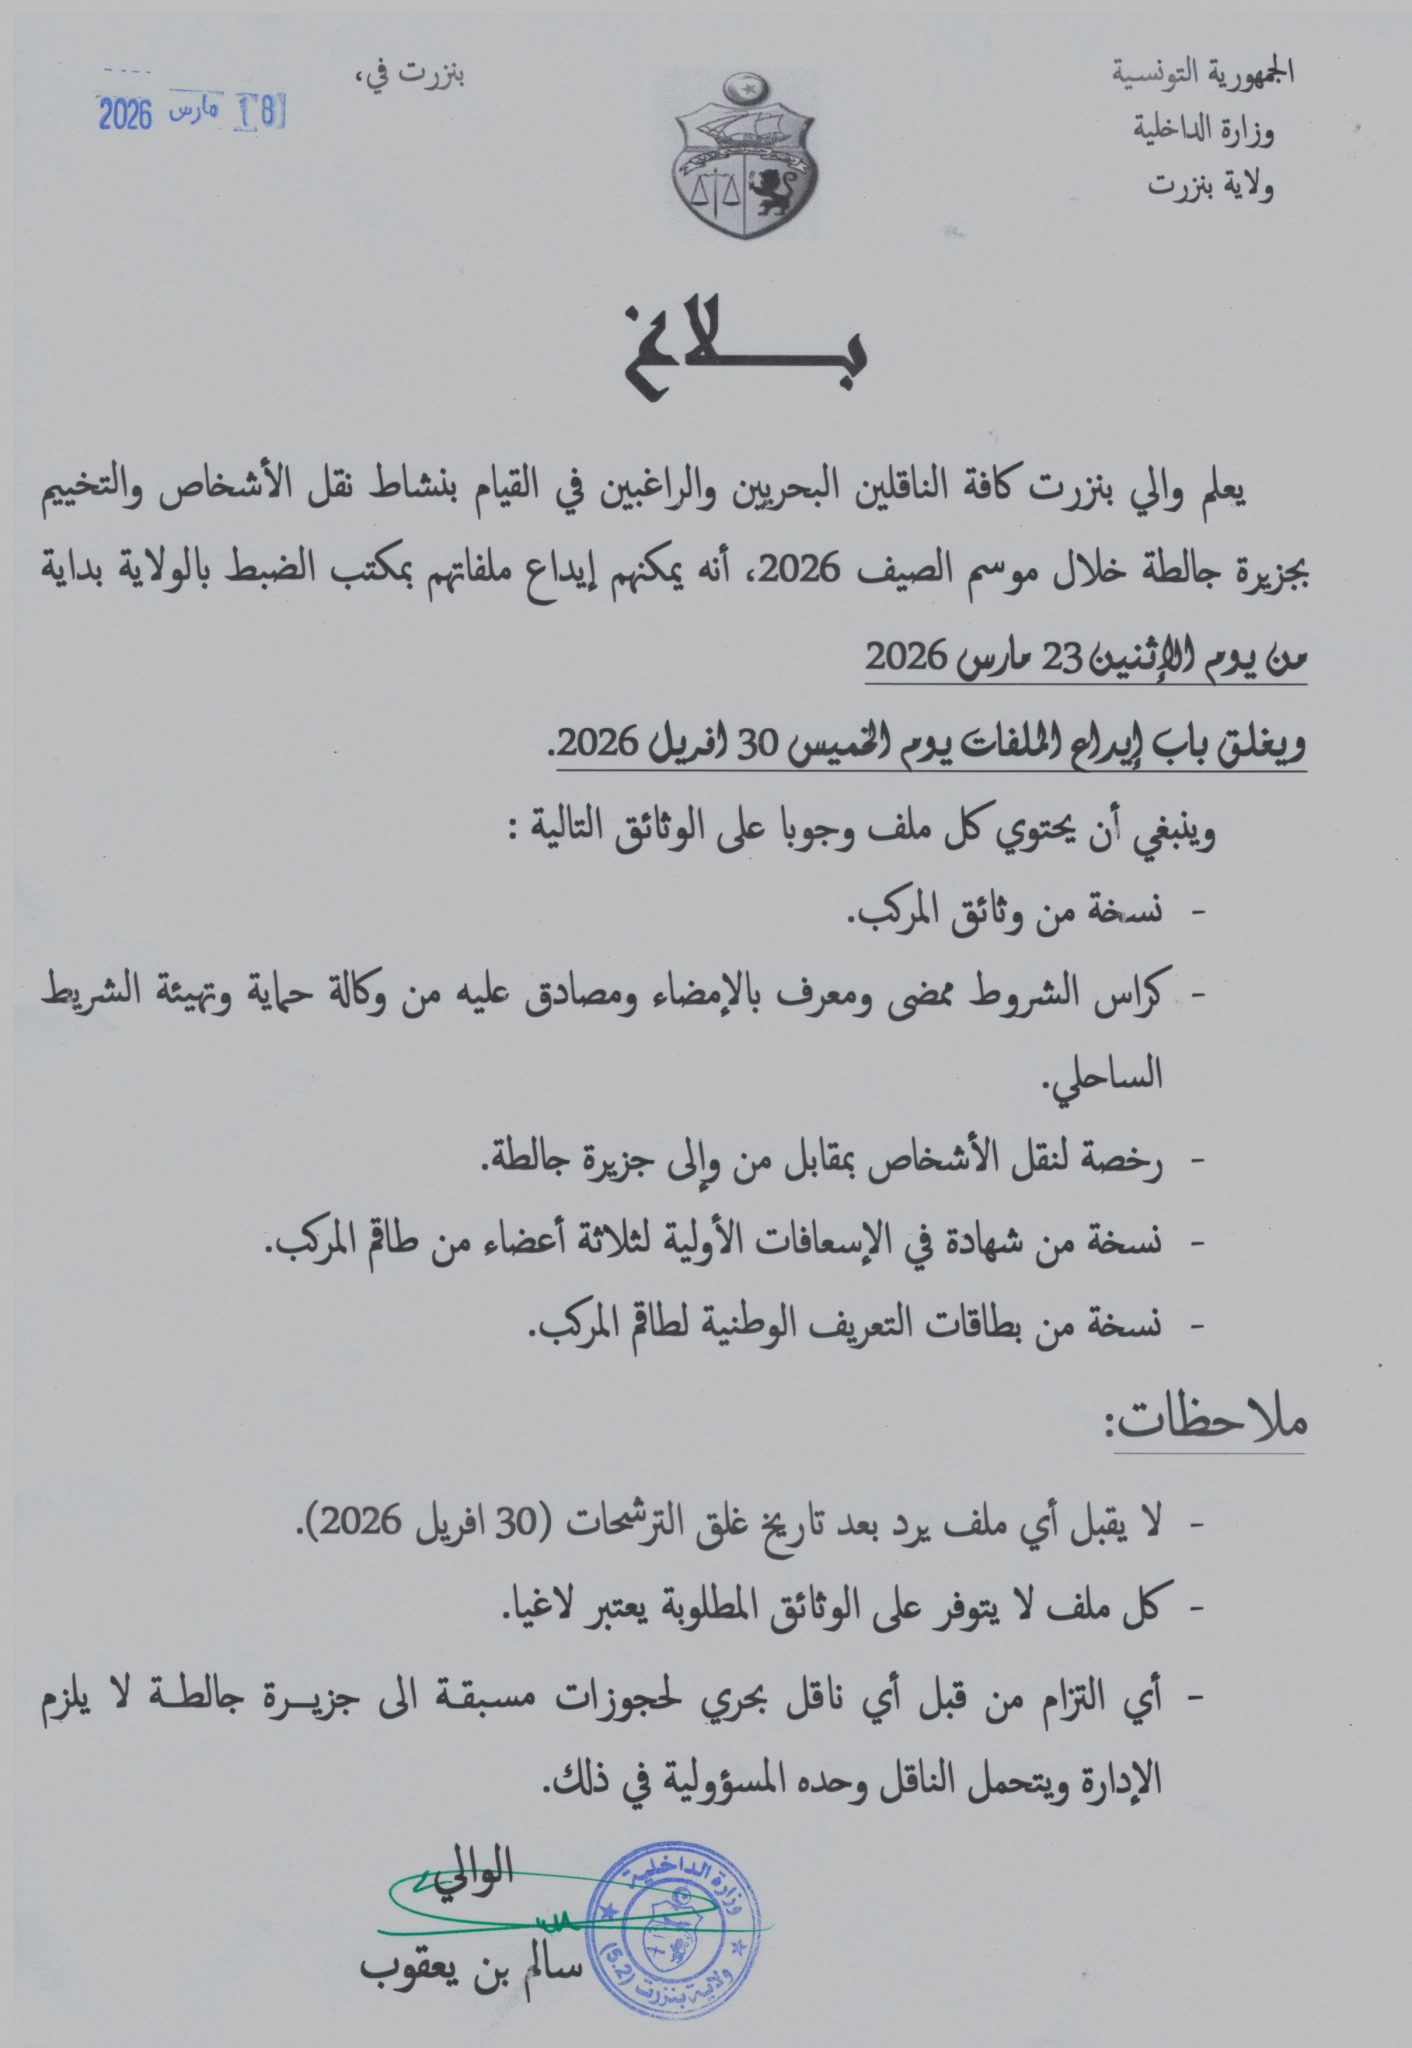 الجمهورية التونسية
وزارة الداخلية
ولاية بنزرت
بنزرت في،
18 مارس 2026
بـــلاغ
يعلم والي بنزرت كافة الناقلين البحريين والراغبين في القيام بنشاط نقل الأشخاص والتخييم
بجزيرة جالطة خلال موسم الصيف 2026، أنه يمكنهم إيداع ملفاتهم بمكتب الضبط بالولاية بداية
من يوم الإثنين 23 مارس 2026
ويغلق باب إيداع الملفات يوم الخميس 30 افريل 2026.
وينبغي أن يحتوي كل ملف وجوبا على الوثائق التالية :
- نسخة من وثائق المركب.
- كراس الشروط ممضى ومعرف بالإمضاء ومصادق عليه من وكالة حماية وتهيئة الشريط
الساحلي.
- رخصة لنقل الأشخاص بمقابل من وإلى جزيرة جالطة.
- نسخة من شهادة في الإسعافات الأولية لثلاثة أعضاء من طاقم المركب.
- نسخة من بطاقات التعريف الوطنية لطاقم المركب.
ملاحظات:
- لا يقبل أي ملف يرد بعد تاريخ غلق الترشحات (30 افريل 2026).
- كل ملف لا يتوفر على الوثائق المطلوبة يعتبر لاغيا.
- أي التزام من قبل أي ناقل بحري لحجوزات مسبقة الى جزيـرة جالطـة لا يلزم
الإدارة ويتحمل الناقل وحده المسؤولية في ذلك.
الوالي
سالم بن يعقوب
وزارة الداخلية
ولاية بنزرت (5.2)